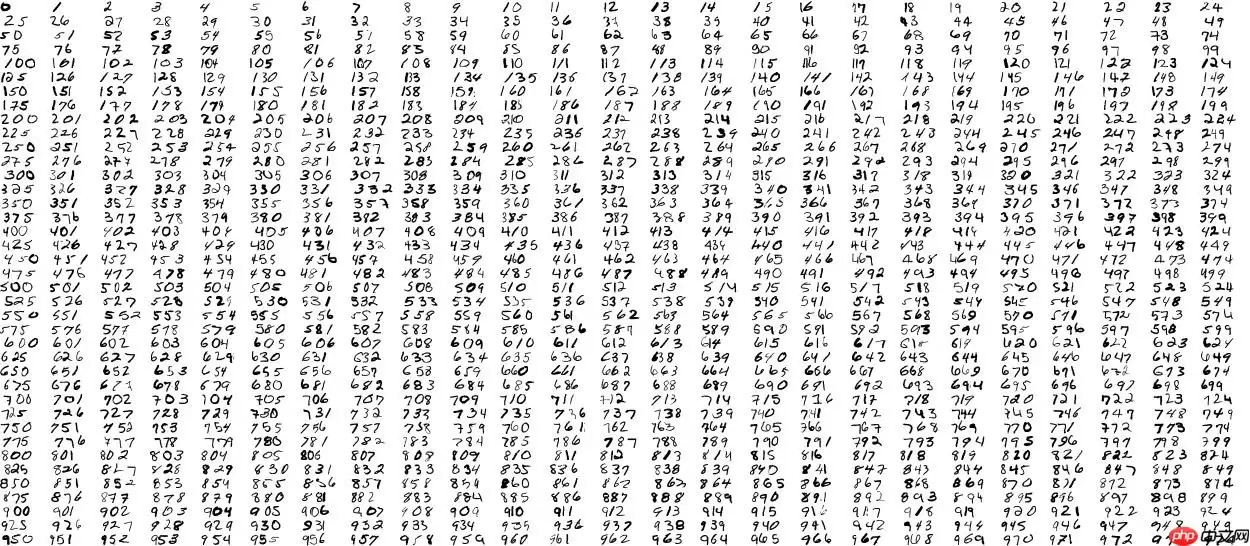 0 1 2 3 4 5 6 7 8 9 10 11 12 13 14 15 16 17 18 19 20 21 22 23 24
25 26 27 28 29 30 31 32 33 34 35 36 37 38 39 40 41 42 43 44 45 46 47 48 49
50 51 52 53 54 55 56 57 58 59 60 61 62 63 64 65 66 67 68 69 70 71 72 73 74
75 76 77 78 79 80 81 82 83 84 85 86 87 88 89 90 91 92 93 94 95 96 97 98 99
100 101 102 103 104 105 106 107 108 109 110 111 112 113 114 115 116 117 118 119 120 121 122 123 124
125 126 127 128 129 130 131 132 133 134 135 136 137 138 139 140 141 142 143 144 145 146 147 148 149
150 151 152 153 154 155 156 157 158 159 160 161 162 163 164 165 166 167 168 169 170 171 172 173 174
175 176 177 178 179 180 181 182 183 184 185 186 187 188 189 190 191 192 193 194 195 196 197 198 199
200 201 202 203 204 205 206 207 208 209 210 211 212 213 214 215 216 217 218 219 220 221 222 223 224
225 226 227 228 229 230 231 232 233 234 235 236 237 238 239 240 241 242 243 244 245 246 247 248 249
250 251 252 253 254 255 256 257 258 259 260 261 262 263 264 265 266 267 268 269 270 271 272 273 274
275 276 277 278 279 280 281 282 283 284 285 286 287 288 289 290 291 292 293 294 295 296 297 298 299
300 301 302 303 304 305 306 307 308 309 310 311 312 313 314 315 316 317 318 319 320 321 322 323 324
325 326 327 328 329 330 331 332 333 334 335 336 337 338 339 340 341 342 343 344 345 346 347 348 349
350 351 352 353 354 355 356 357 358 359 360 361 362 363 364 365 366 367 368 369 370 371 372 373 374
375 376 377 378 379 380 381 382 383 384 385 386 387 388 389 390 391 392 393 394 395 396 397 398 399
400 401 402 403 404 405 406 407 408 409 410 411 412 413 414 415 416 417 418 419 420 421 422 423 424
425 426 427 428 429 430 431 432 433 434 435 436 437 438 439 440 441 442 443 444 445 446 447 448 449
450 451 452 453 454 455 456 457 458 459 460 461 462 463 464 465 466 467 468 469 470 471 472 473 474
475 476 477 478 479 480 481 482 483 484 485 486 487 488 489 490 491 492 493 494 495 496 497 498 499
500 501 502 503 504 505 506 507 508 509 510 511 512 513 514 515 516 517 518 519 520 521 522 523 524
525 526 527 528 529 530 531 532 533 534 535 536 537 538 539 540 541 542 543 544 545 546 547 548 549
550 551 552 553 554 555 556 557 558 559 560 561 562 563 564 565 566 567 568 569 570 571 572 573 574
575 576 577 578 579 580 581 582 583 584 585 586 587 588 589 590 591 592 593 594 595 596 597 598 599
600 601 602 603 604 605 606 607 608 609 610 611 612 613 614 615 616 617 618 619 620 621 622 623 624
625 626 627 628 629 630 631 632 633 634 635 636 637 638 639 640 641 642 643 644 645 646 647 648 649
650 651 652 653 654 655 656 657 658 659 660 661 662 663 664 665 666 667 668 669 670 671 672 673 674
675 676 677 678 679 680 681 682 683 684 685 686 687 688 689 690 691 692 693 694 695 696 697 698 699
700 701 702 703 704 705 706 707 708 709 710 711 712 713 714 715 716 717 718 719 720 721 722 723 724
725 726 727 728 729 730 731 732 733 734 735 736 737 738 739 740 741 742 743 744 745 746 747 748 749
750 751 752 753 754 755 756 757 758 759 760 761 762 763 764 765 766 767 768 769 770 771 772 773 774
775 776 777 778 779 780 781 782 783 784 785 786 787 788 789 790 791 792 793 794 795 796 797 798 799
800 801 802 803 804 805 806 807 808 809 810 811 812 813 814 815 816 817 818 819 820 821 822 823 824
825 826 827 828 829 830 831 832 833 834 835 836 837 838 839 840 841 842 843 844 845 846 847 848 849
850 851 852 853 854 855 856 857 858 859 860 861 862 863 864 865 866 867 868 869 870 871 872 873 874
875 876 877 878 879 880 881 882 883 884 885 886 887 888 889 890 891 892 893 894 895 896 897 898 899
900 901 902 903 904 905 906 907 908 909 910 911 912 913 914 915 916 917 918 919 920 921 922 923 924
925 926 927 928 929 930 931 932 933 934 935 936 937 938 939 940 941 942 943 944 945 946 947 948 949
950 951 952 953 954 955 956 957 958 959 960 961 962 963 964 965 966 967 968 969 970 971 972
php 中文网